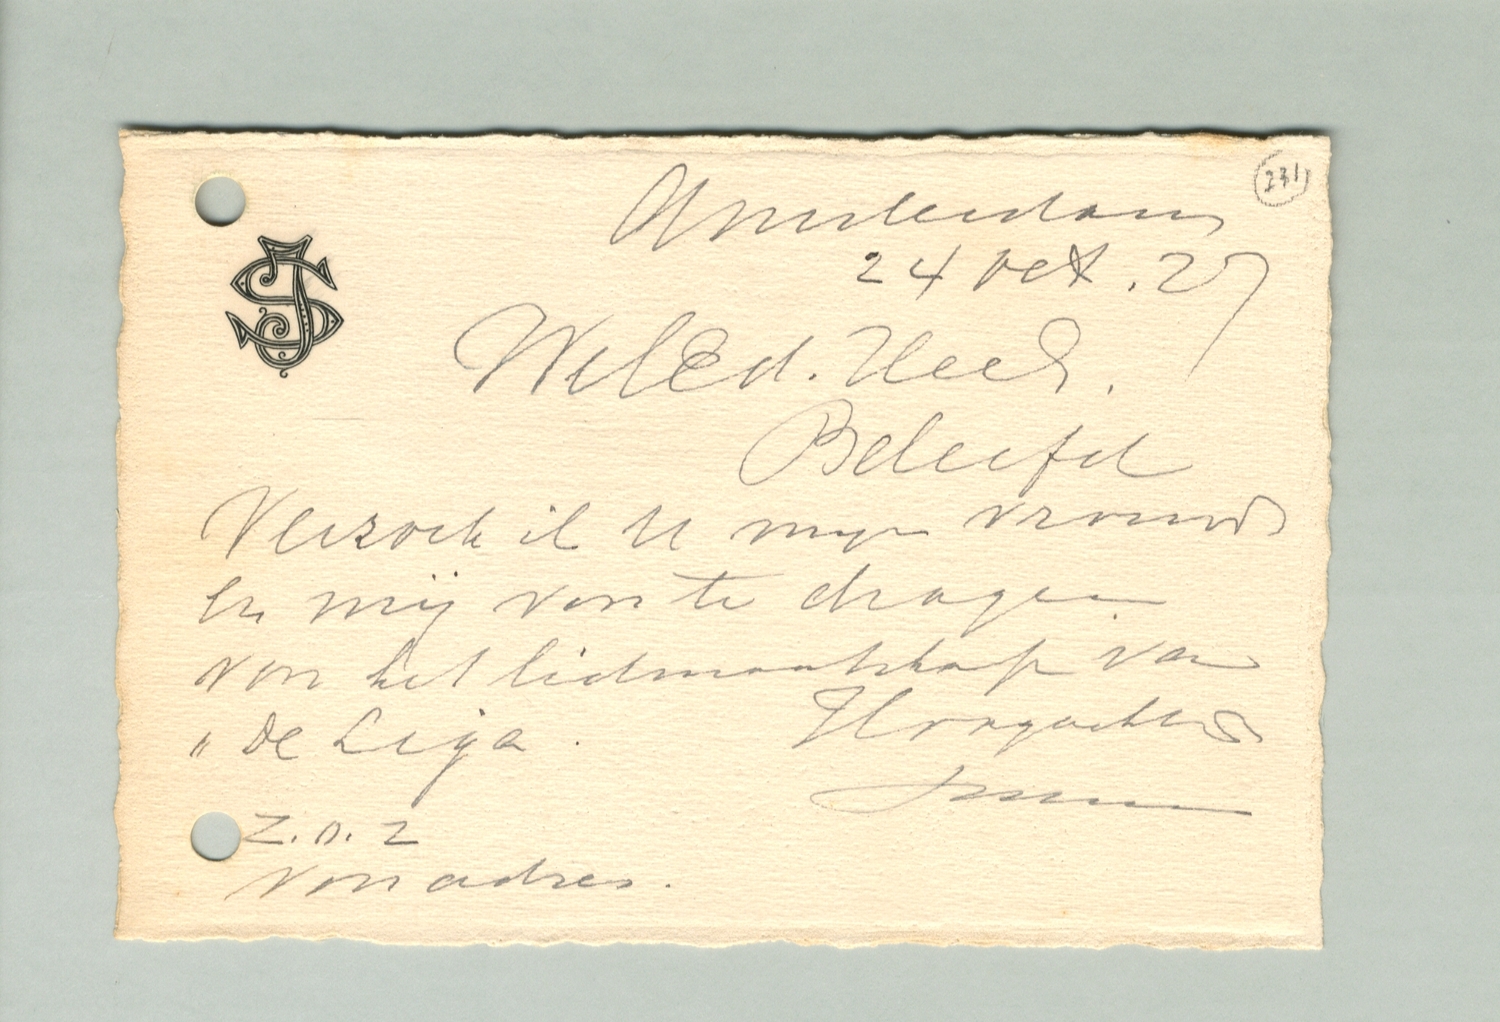 231
Amsterdam
24 Oct. 27
JS
WelEd. Heer.
Beleefd
Verzoek ik U mijn vrouw
en mij voor te dragen
voor het lidmaatschap van
„ De Liga .
Hoogachtend
Z.O.Z
voor adres.